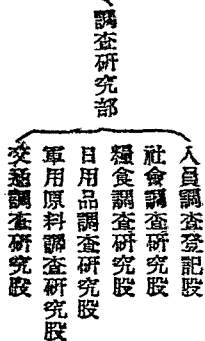 調查研究部
人員調查登記股
社會調查研究股
糧食調查研究股
日用品調查研究股
軍用原料調查研究股
交通調查研究股